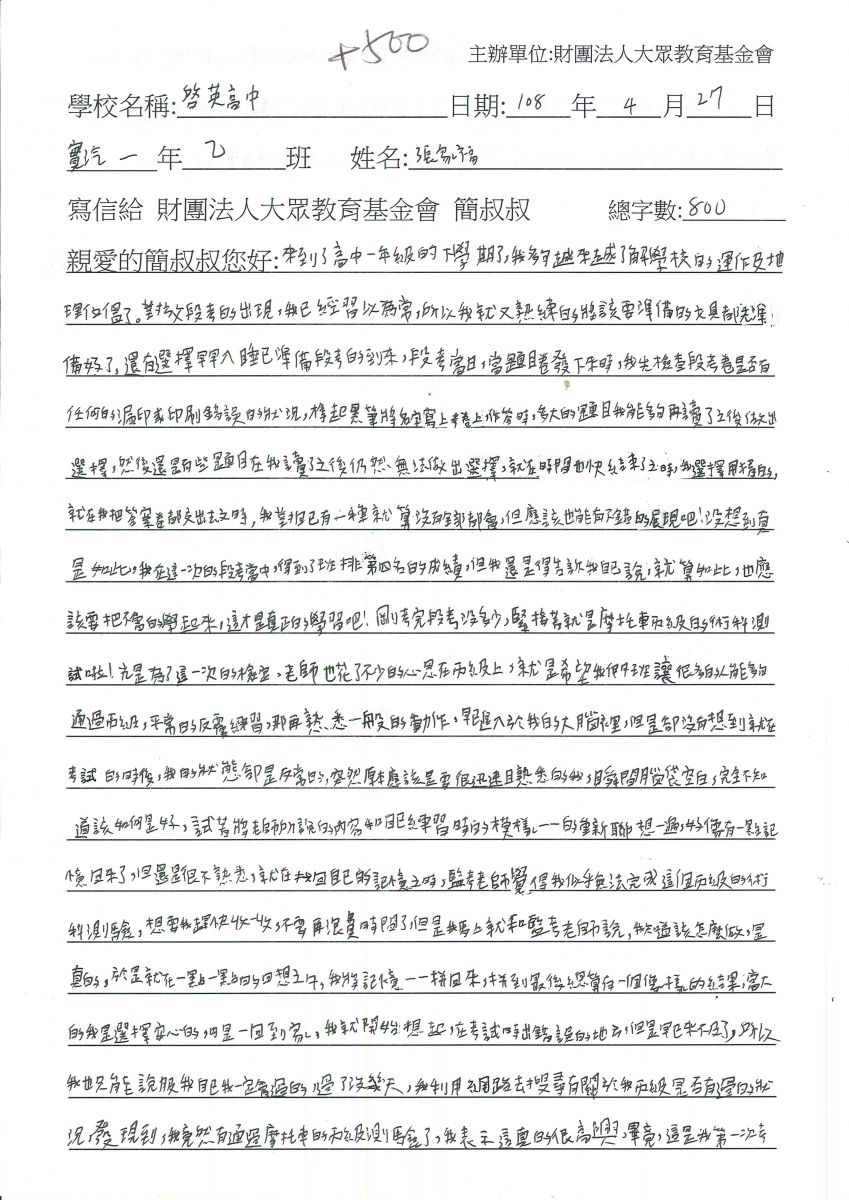 +500
主辦單位:財團法人大眾教育基金會
學校名稱:啓英高中 日期:108年4月27日
實汽一年乙班 姓名:張家福
寫信給 財團法人大眾教育基金會 簡叔叔 總字數:800
親愛的簡叔叔您好:來到了高中一年級的下學期了,我夠越來越了解學校的運作及地
理位置了。對於段考的出現,我已經習以為常,所以我就又熟練的將該要準備的文具都先準
備好了,還有選擇早早入睡已準備段考的到來,段考當日,當題目卷發下來時,我先檢查段考卷是否有
任何的漏印或印刷錯誤的狀況,拿起黑筆將名字寫上考卷上,作答時,多大的題目我能夠再讀了之後做出
選擇,然後還是有些題目在我讀了之後仍然無法做出選擇,就在時間也快結束了之時,我選擇用猜的,
就在我把答案卷都交出去之時,我對自己有一種就算沒有全部都會,但應該也能有不錯的展現吧!沒想到真
是如此,我在這一次的段考當中,得到了班排第四名的成績,但我還是得告訴我自己說,就算如此,也應
該要把不會的學起來,這才是真正的學習吧!剛考完段考沒多少,緊接著就是摩托車丙級的術科測
試啦!光是為了這一次的檢定,老師也花了不少的心思在丙級上,就是希望我們班讓很多的人能夠
通過丙級,平常的反覆練習,那再熟悉一般的動作,早進入於我的大腦裡,但是卻沒有想到就在
考試的時候,我的狀態卻是反常的,突然原本應該是要很迅速且熟悉的我,瞬間腦袋空白,完全不知
道該如何是好,試著將老師所說的內容和自己練習時的模樣,一一的重新聯想一遍,好像有一點記
憶回來了,但還是很不熟悉,就在找回自己的記憶之時,監考老師覺得我似乎無法完成這個丙級的術
科測驗,想要我趕快收一收,不要再浪費時間了,但是我馬上就和監考老師說,我知道該怎麼做,是
真的,於是就在一點一點的回想之下,我將記憶一一拼回來,拼到最後總算有一個像樣的結果,當下
的我是選擇安心的,可是一回到家,我就開始想起,在考試時出錯誤的地方,但是早已來不及了,所以
我也只能說服我自己我一定會過的,過了沒幾天,我利用網路去搜尋有關於我丙級是否有過的狀
況,發現到,我竟然有通過摩托車的丙級測驗了,我表示這真的很高興,畢竟,這是我第一次考